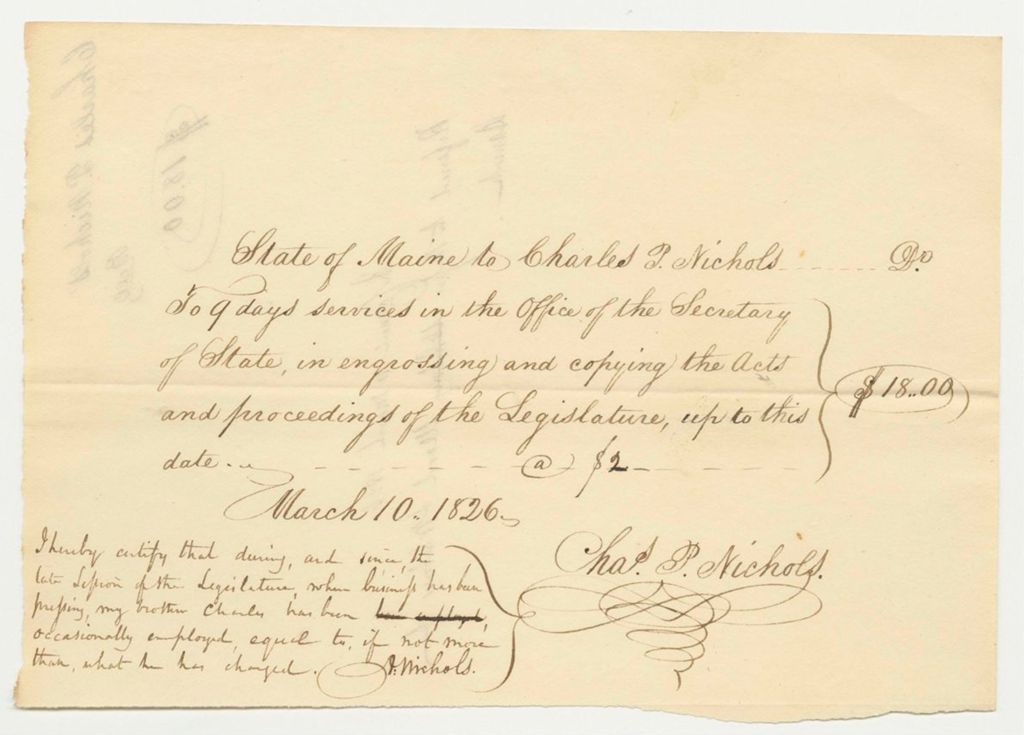 State of Maine to Charles P. Nichols Dr.
To 9 days services in the Office of the Secretary
of State, in engrossing and copying the Acts
and proceedings of the Legislature, up to this
date @ $2
$18.00
March 10. 1826
Chas. P. Nichols.
I hereby certify that during, and since, the
late Session of the Legislature, when business has been
pressing, my brother Charles has been
occasionally employed, equal to, if not more
than, what he has charged. A. Nichols.
Charles P. Nichols
Pay
$18.00